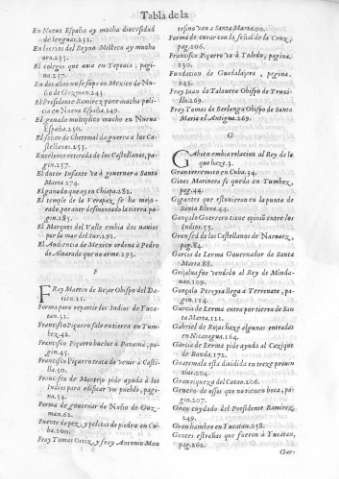 Tabla de la
En Nueva España ay mucha diversidad
de lenguas.232.
En los rios del Reyno Misteco ay mucho
oro.235.
El colegio que avia en Tepozic, pagi-
na.237.
El Presidente Ramirez pone mucha poli-
cia en Nueva España.249.
El ganado multiplica mucho en Nueva
España.250.
El señor de Chetemal da guerra a los Ca-
stellanos.255.
Excelente entrada de los Castellanos, pa-
gin.257.
El dotor Infante va à governar a Santa
Marta.274.
El ganado que ay en Chiapa.282.
El temple de la Verapaz se ha mejo-
rado por aver desmontado la tierra.pa-
gin.285.
El Marques del Valle embia dos navios
por la mar del Sur.287.
El Audiencia de Mexico ordena à Pedro
de Alvarado que no arme.293.
F
FRay Martin de Bejar Obispo del Da-
rien.12.
Forma para repartir los Indios de Yuca-
tan.31.
Francisco Piçarro sale en tierra en Tum-
bez.42.
Francisco Piçarro buelve à Panamà, pa-
gin.45.
Francisco Piçarro trata de venir à Casti-
lla.50.
Francisco de Montejo pide ayuda à los
Indios para edificar un pueblo, pagi-
na.54.
Forma de governar de Nuño de Guz-
man.62.
Fuente de pez, y pelotas de piedra en Cu-
ba.100.
Fray Tomas Ortiz, y fray Antonio Mon
tesino van a Santa Marta.100.
Forma de curar con la señal de la Cruz,
pag.206.
Francisco Piçarro va à Toledo, pagina.
230.
Fundacion de Guadalajara, pagina.
245.
Fray Juan de Talavera Obispo de Truxi-
llo.269.
Fray Tomas de Berlanga Obispo de Santa
Maria el Antigua.269.
G
GAboto embia relacion al Rey de lo
que haze.3.
Gran terremoto en Cuba.34.
Gines Marinero se queda en Tumbez,
pag.44.
Gigantes que estuvieron en la punta de
Santa Elena.45.
Gonçalo Guerrero tiene oprimidos entre los
Indios.55.
Gran sed de los Castellanos de Narvaez,
pag.84.
Garcia de Lerma Governador de Santa
Marta.88.
Gonçalo Pereyra llega à Terrenate, pa-
gin.124.
Garcia de Lerma entra por tierra de San
ta Marta.131.
Gabriel de Rojas haze algunas entradas
en Nicaragua.164.
Garcia de Lerma pide ayuda al Cazique
de Bonda.172.
Guatemala esta dividida en treze provin
cias.204.
Gran riqueza del Cacao.206.
Genero de ussas que no tienen boca, pa-
gin.207.
Gran cuydado del Presidente Ramirez,
249.
Gran hambre en Yucatan.258.
Gentes estrañas que fueron à Yucatan,
pag.262.